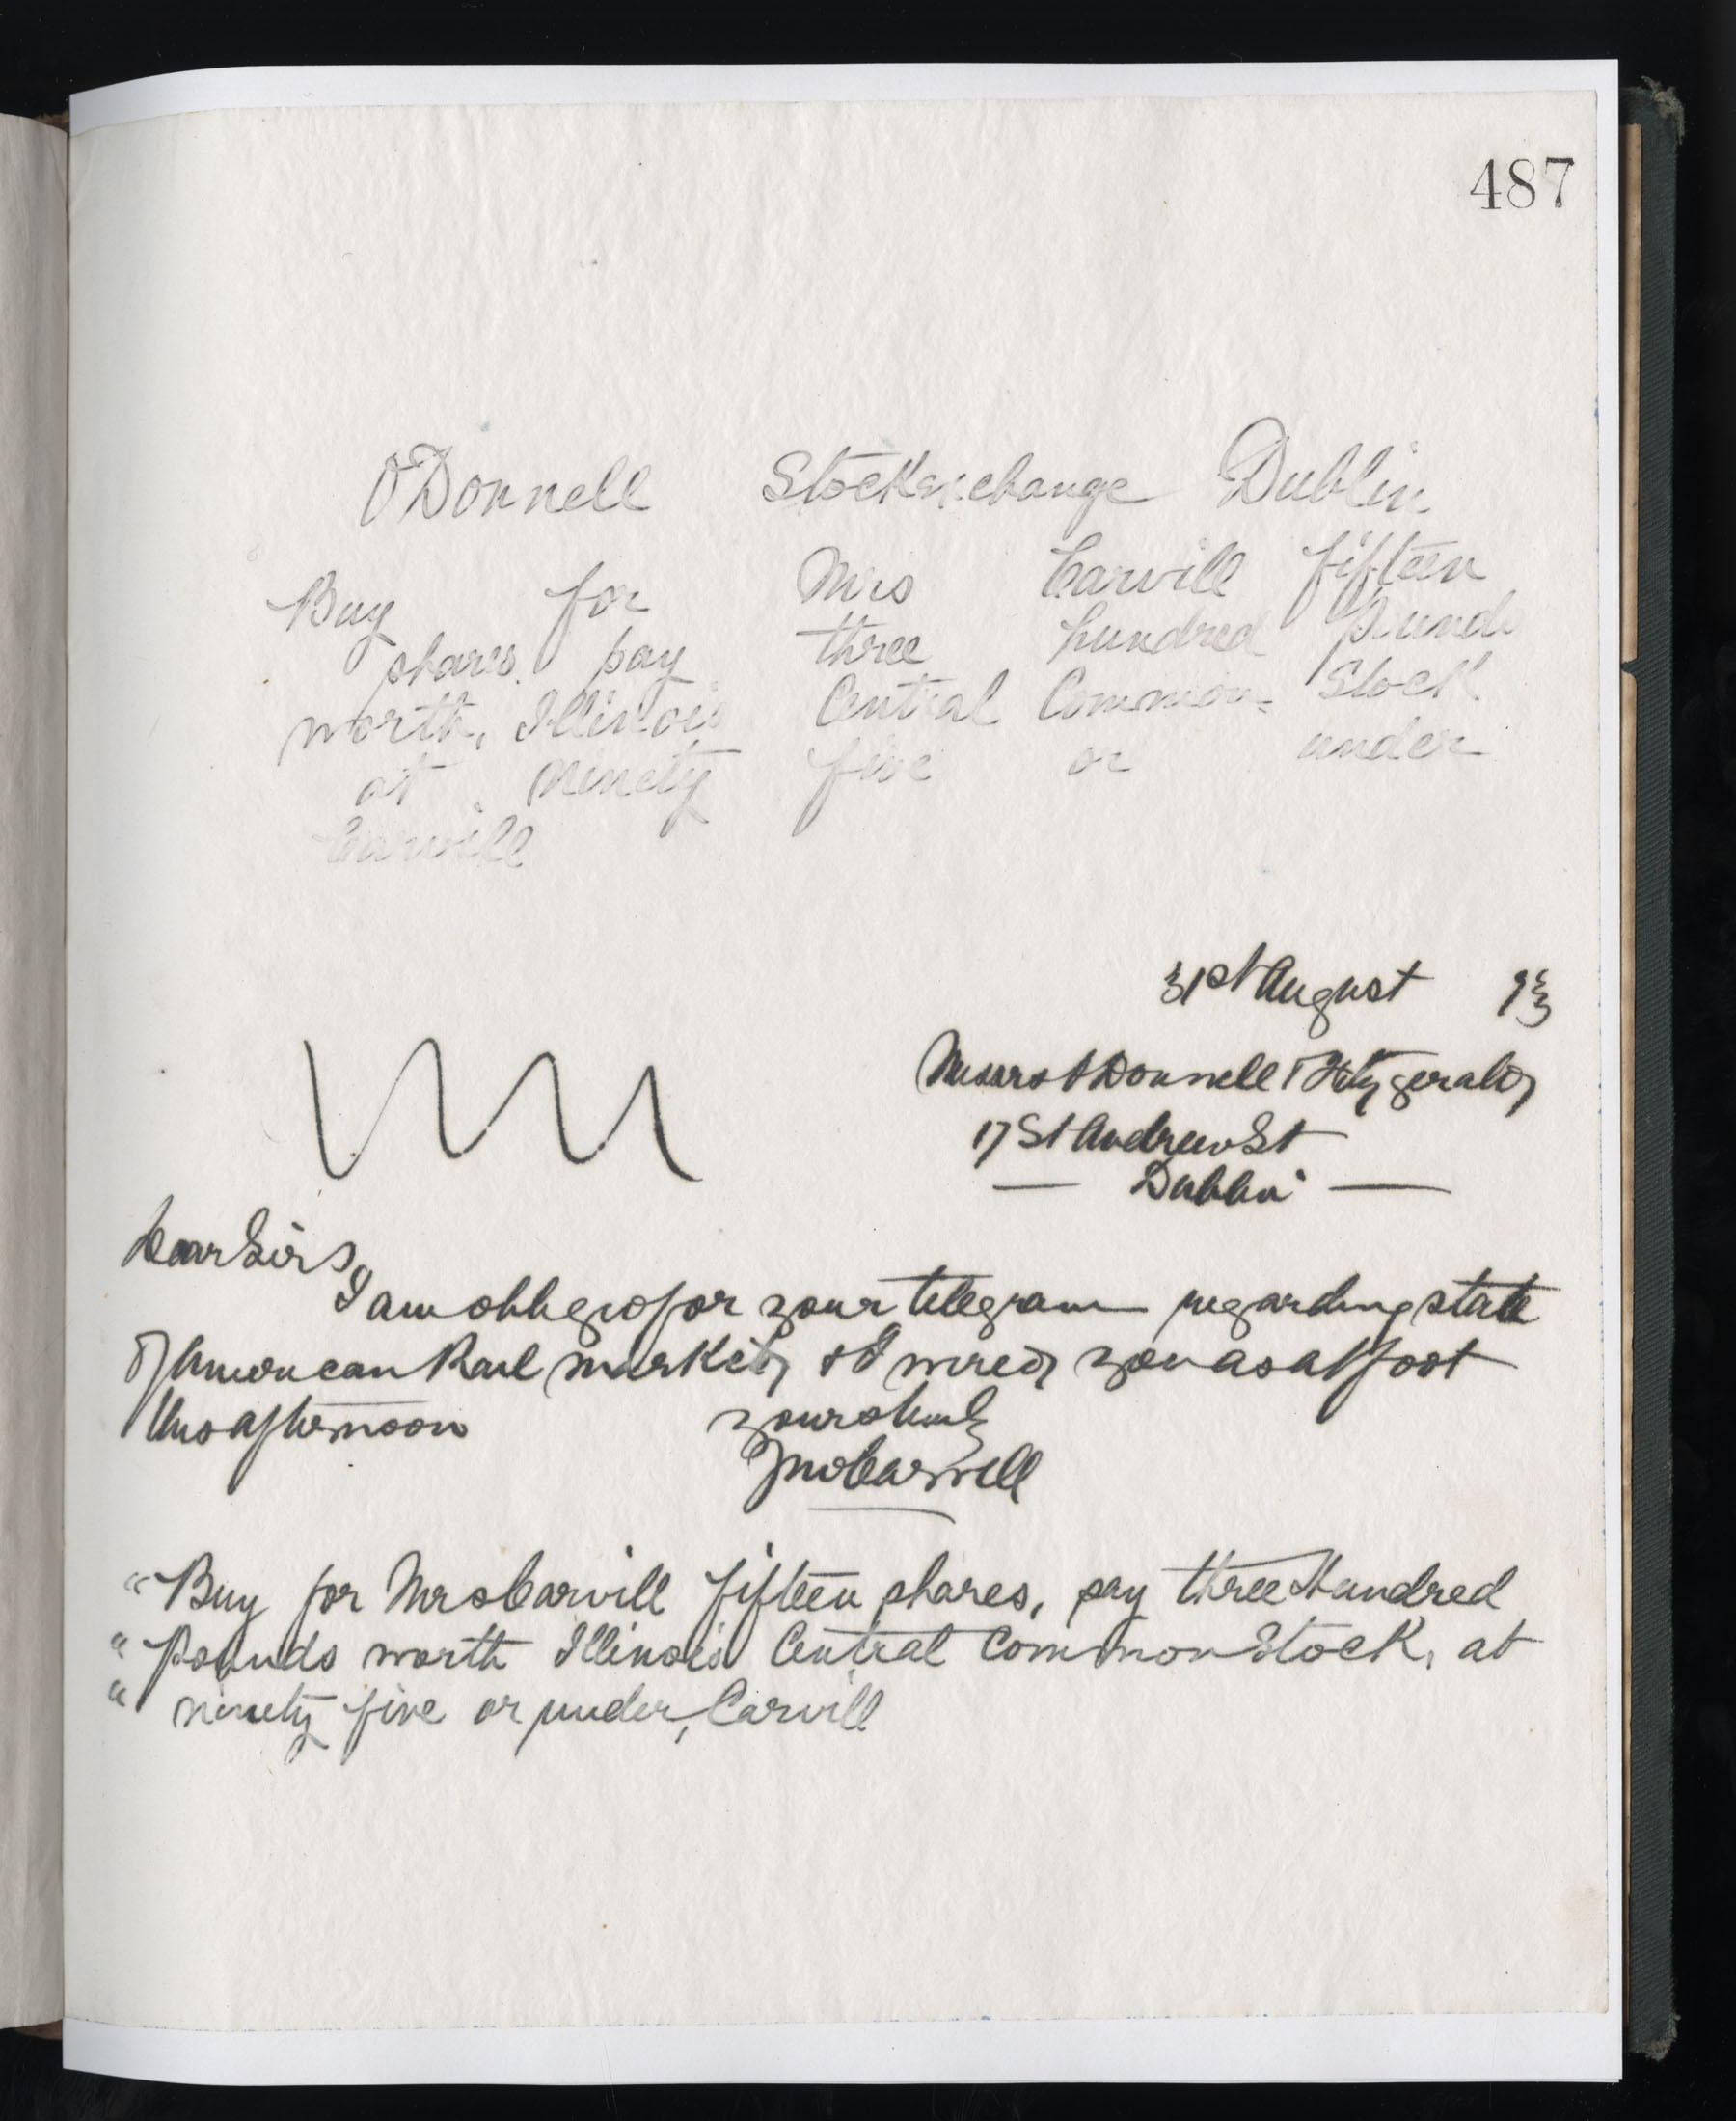 487
O'Donnell Stockexchange Dublin
Buy for Mrs Carvill fifteen
shares pay three hundred Pounds
worth, Illinois Central Common Stock
at ninety five or under
Carvill
31st August 93
Messrs O'Donnell & Fitzgerald
17 St Andrew St
Dublin
Dear Sirs,
I am obliged for your telegram regarding state
of American Rail market, & I wired you as at foot
this afternoon
yours truly
Jno Carvill
"Buy for Mrs Carvill fifteen shares, say three Hundred
" Pounds worth Illinois Central Common Stock, at
" ninety five or under, Carvill